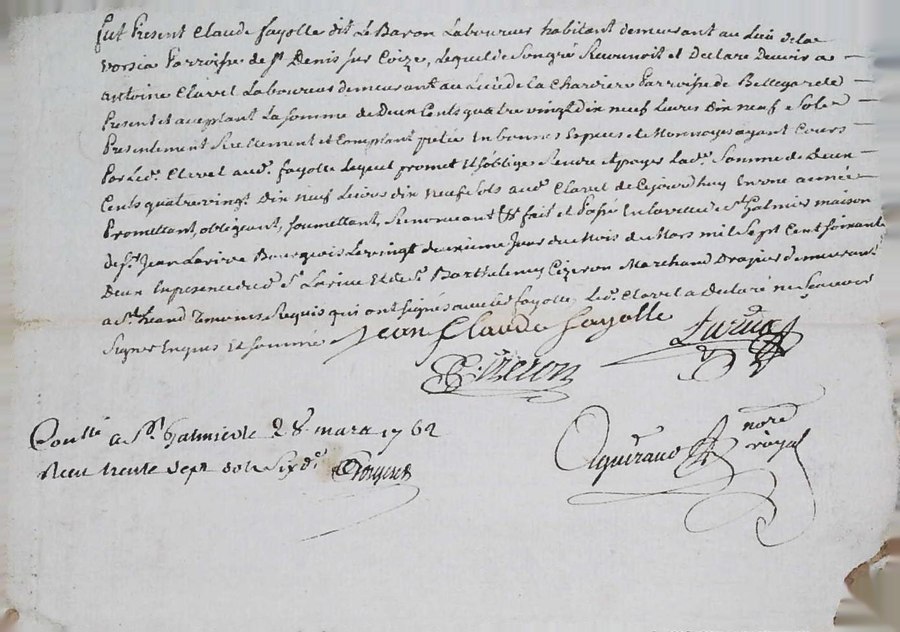 fut Present Claude fayolle dit Le Baron Laboureur habitant demeurant au Lieu de la
Parroisse de St Denis sur Coize, Lequel de Son gré Reconnoit et Declare Devoir a
Antoine Clavel Laboureur demeurant au Lieu de la Charriere Parroisse de Bellegarde
Present et acceptant La Somme de Deux Cents quatre vingt Dix neuf Livres Dix neuf Sols
Presentement Reellement et Comptant pretée En bonnes Espèces et Monnoyes ayant Cours
Par Led. Clavel aud. fayolle Lequel promet Et S'oblige Rendre & payer Lad. Somme de Deux
Cents quatre vingt Dix neuf Livres dix neuf Sols aud. Clavel de Cejourdhuy En une année
Promettant, obligeant, Soumettant, Renonceant &a fait et Passé En la ville de St Galmier maison
de Sr Jean Larive Bourgeois Le vingt deuxieme Jour du Mois de Mars mil Sept Cent Soixante
Deux En presence dud. Sr Larive Et de Sr Barthelemy Cizeron Marchand Drapier demeurant
a St heand Temoins Requis qui ont Signé avec led. fayolle, Led. Clavel a Declaré ne Scavoir
Signer Enquis Et Sommé Jean Claude fayolle Larive
Cizeron
Conllé a St Galmier le 28 mars 1762 not re
Reçu trente Sept Sols Six d. royal